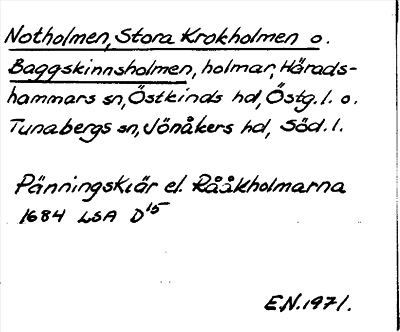 Notholmen, Stora Krokholmen o.
Baggskinnsholmen, holmar, Härads-
hammars sn, Östkinds hd, Östg. l. o.
Tunabergs sn, Jönåkers hd, Söd. l.
Pänningskiär el. Rååkholmarna
1684 LSA D15
E.N. 1971.